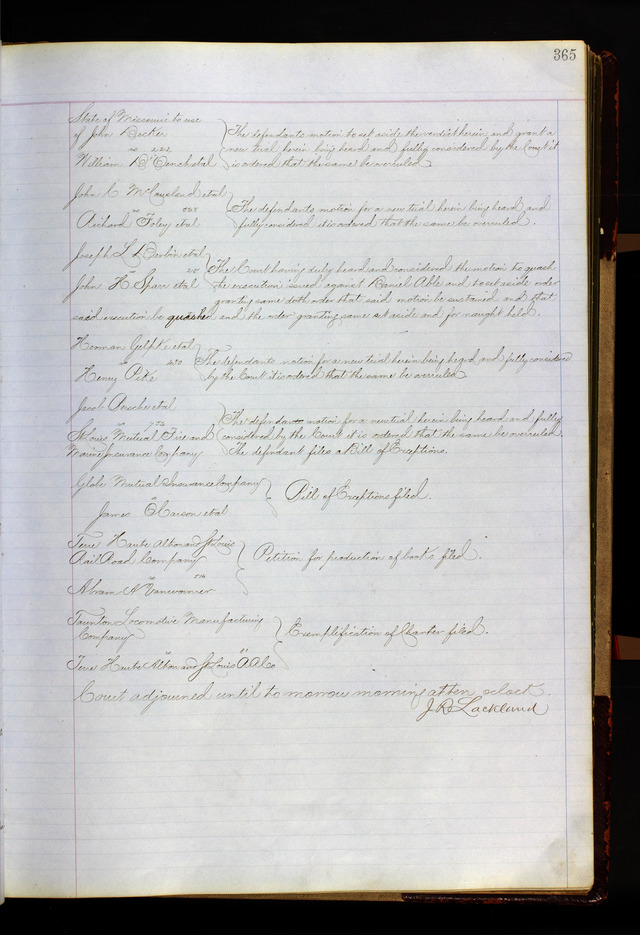 365
State of Missouri to use
of John Becker
vs 222
William
The defendants motion to set aside the verdict herein, and grant a
new trial herein being heard and fully considered by the Court it
is ordered that the same be overruled.
John C McCausland et al
vs
Richard Foley et al
The defendants motion for a new trial herein being heard and
fully considered it is ordered that the same be overruled.
Joseph L et al
vs
John H Sparr et al
The Court having duly heard and considered the motion to quash
the execution issued against Daniel Able and to set aside order
granting same doth order that said motion be sustained and that
said execution be quashed and the order granting same set aside and for naught held.
Herman Gelpke et al
vs
Henry Pike
The defendants motion for a new trial herein being heard and fully considered
by the Court it is ordered that the same be overruled
Jacob et al
vs
St Louis Mutual Fire and
Marine Insurance Company
The defendants motion for a new trial herein being heard and fully
considered by the Court it is ordered that the same be overruled.
The defendant files a Bill of Exceptions.
Globe Mutual Insurance Company
vs
James Carson et al
Bill of Exceptions filed.
Terre Haute Alton and St Louis
Rail Road Company
vs
Abram N
Petition for production of books filed.
Taunton Locomotive Manufacturing
Company
vs
Terre Haute Alton and St Louis R R Co
Exemplification of Charter filed.
Court adjourned until to morrow morning at ten oclock.
J R Lackland